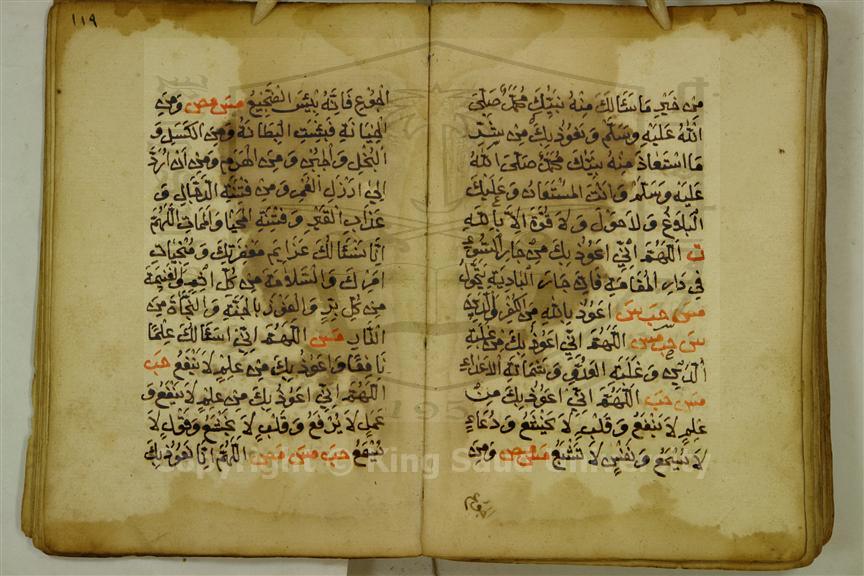 من خير ما سئالك منه نبيك محمد صلى
الله عليه وسلم ونعوذ بك من شر
ما استعاذ منه نبيك محمد صلى الله
عليه وسلم وانت المستعان وعليك
البلاغ ولا حول ولا قوة الا بالله
ت اللهم اني اعوذ بك من جار السوء
في دار المقامة فان جار البادية يتحول
مس حب س اعوذ بالله من الكفر والدين
س حب مس اللهم اني اعوذ بك من غلبة
الدين وغلبة العدو وشماتة الاعداء
مس حب اللهم اني اعوذ بك من
علم لا ينفع وقلب لا يخشع ودعاء
لا يسمع ونفس لا تشبع مس مص ومن
الجوع
١١٩
الجوع فانه بئس الضجيع مس مص ومن
الخيانة فبئست البطانة ومن الكسل و
البخل والجبن ومن الهرم ومن ان ارد
الى ارذل العمر ومن فتنة الدجال و
عذاب القبر وفتنة المحيا والممات اللهم
انا نسئالك عزايم مغفرتك ومنجيات
امرك والسلامة من كل اثم والغنيمة
من كل بر والفوز بالجنة والنجاة من
النار مس اللهم اني اسئالك علما
نافعا واعوذ بك من علم لا ينفع حب
اللهم اني اعوذ بك من علم لا ينفع و
عمل لا يرفع وقلب لا يخشع وقول لا
يسمع حب مس مص اللهم انا نعوذ بك
Copyright © King Saud University
195